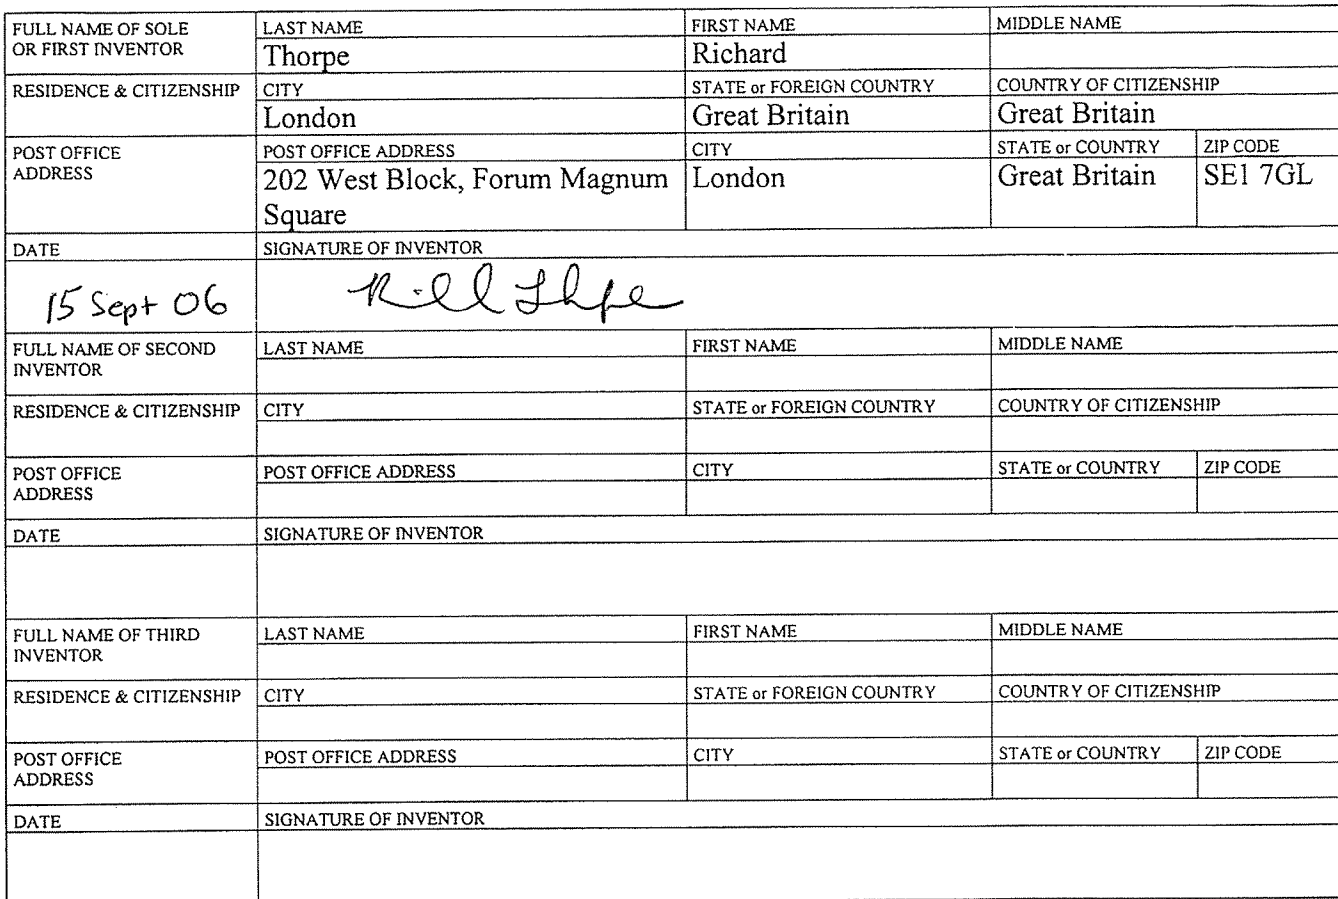 FULL NAME OF SOLE
OR FIRST INVENTOR
LAST NAME
Thorpe
FIRST NAME
Richard
MIDDLE NAME
RESIDENCE & CITIZENSHIP
CITY
London
STATE or FOREIGN COUNTRY
Great Britain
COUNTRY OF CITIZENSHIP
Great Britain
POST OFFICE
ADDRESS
POST OFFICE ADDRESS
202 West Block, Forum Magnum
Square
CITY
London
STATE or COUNTRY
Great Britain
ZIP CODE
SE1 7GL
DATE
15 Sept 06
SIGNATURE OF INVENTOR
FULL NAME OF SECOND
INVENTOR
LAST NAME
FIRST NAME
MIDDLE NAME
RESIDENCE & CITIZENSHIP
CITY
STATE or FOREIGN COUNTRY
COUNTRY OF CITIZENSHIP
POST OFFICE
ADDRESS
POST OFFICE ADDRESS
CITY
STATE or COUNTRY
ZIP CODE
DATE
SIGNATURE OF INVENTOR
FULL NAME OF THIRD
INVENTOR
LAST NAME
FIRST NAME
MIDDLE NAME
RESIDENCE & CITIZENSHIP
CITY
STATE or FOREIGN COUNTRY
COUNTRY OF CITIZENSHIP
POST OFFICE
ADDRESS
POST OFFICE ADDRESS
CITY
STATE or COUNTRY
ZIP CODE
DATE
SIGNATURE OF INVENTOR